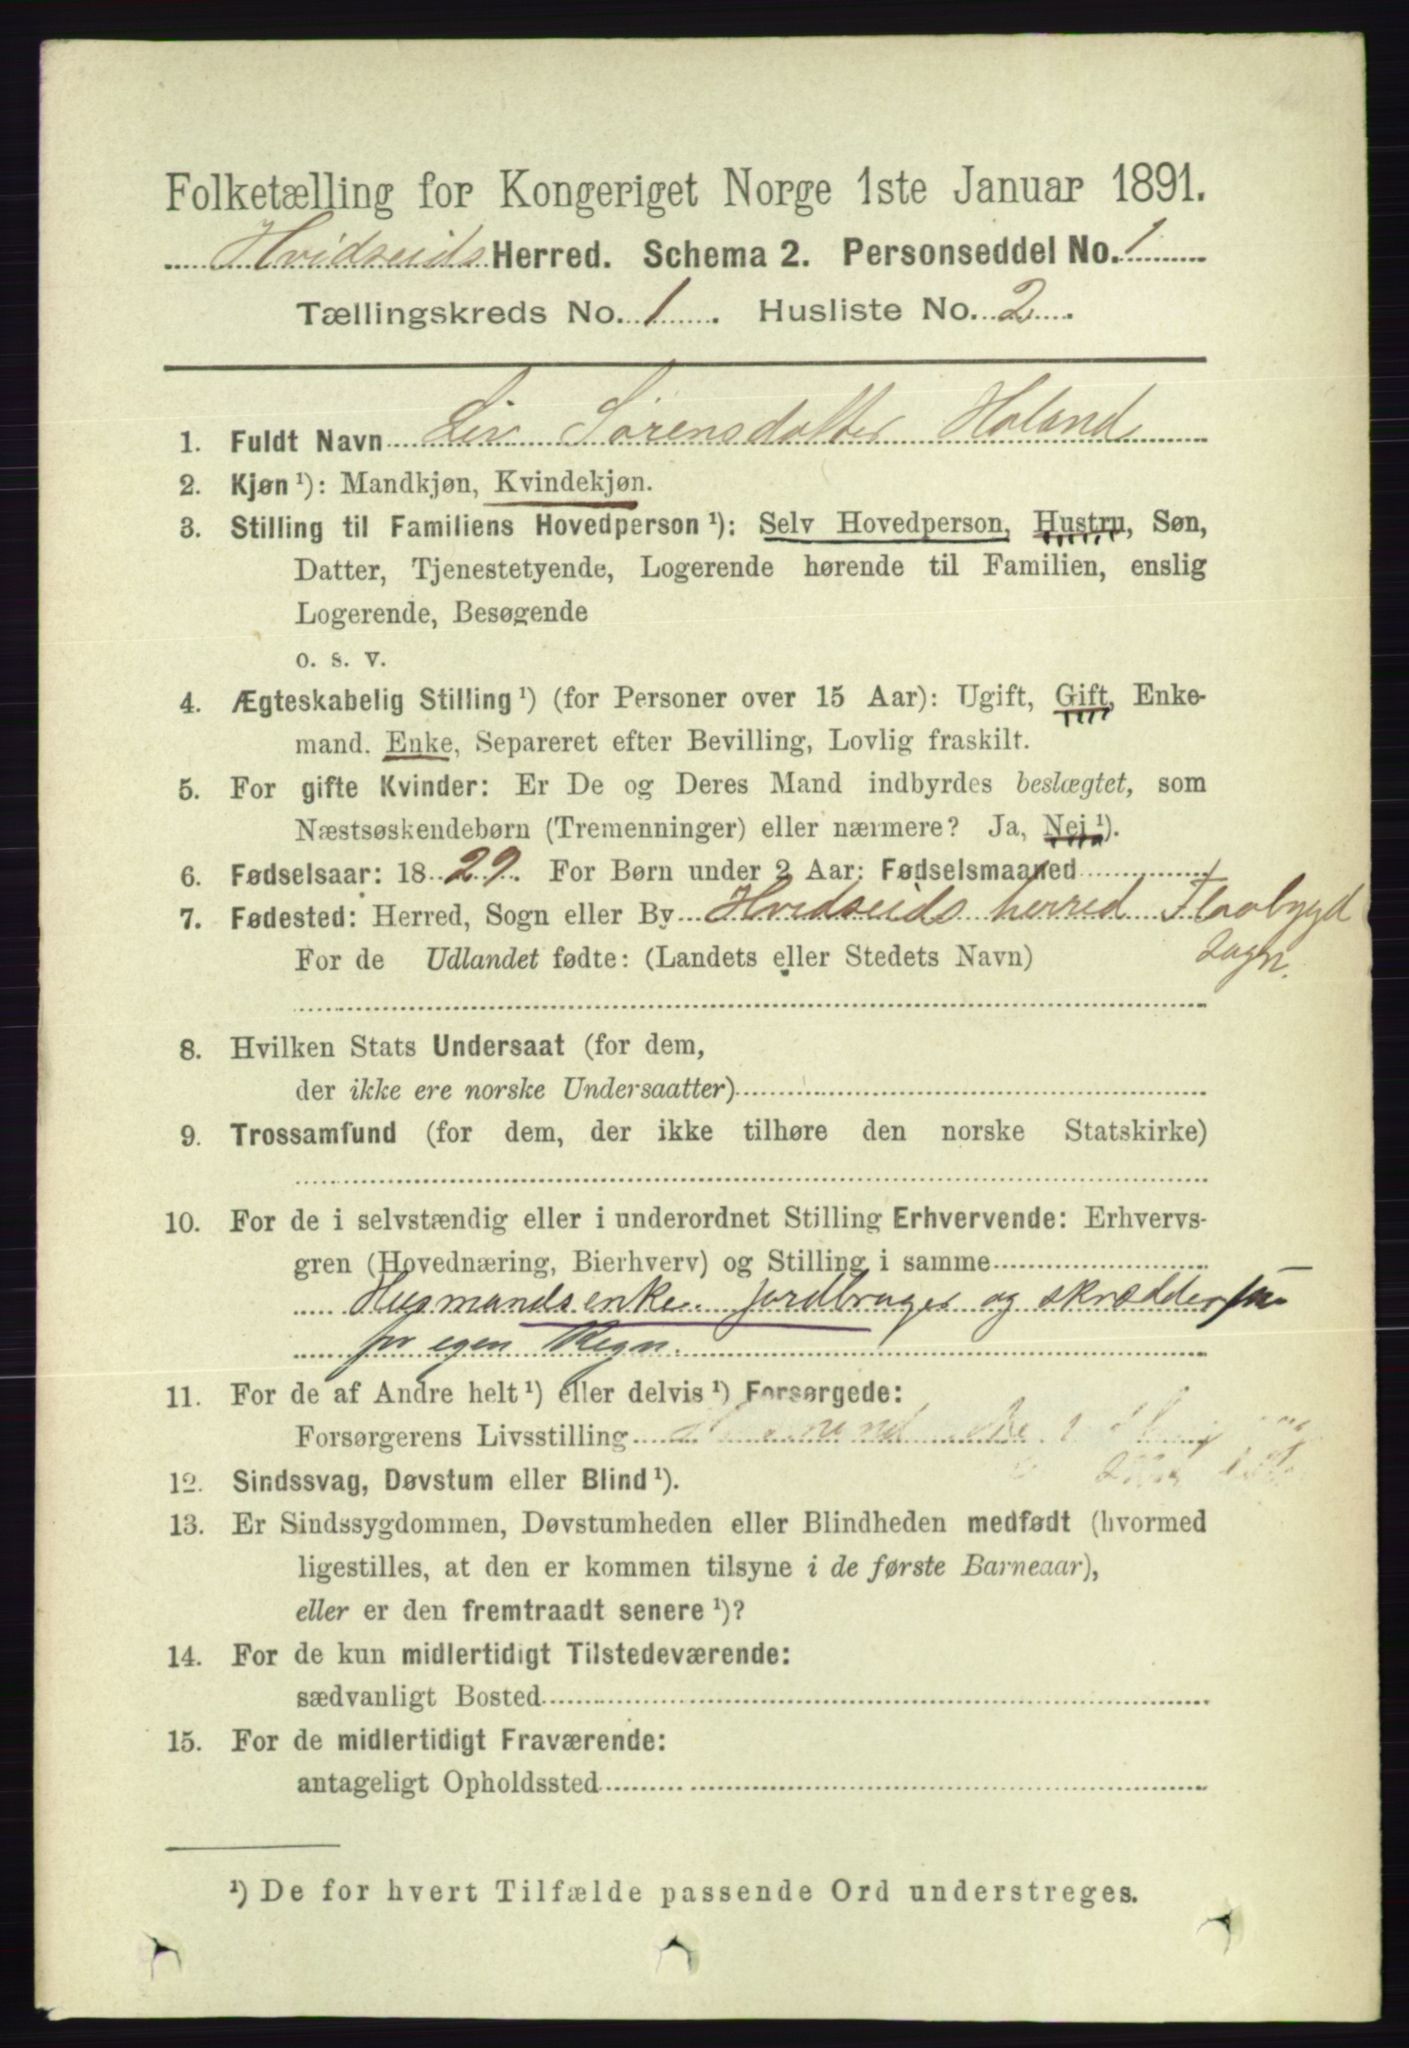 Folketælling for Kongeriget Norge 1ste Januar 1891.
Hvidseids Herred. Schema 2. Personseddel No. 1
Tællingskreds No. 1. Husliste No. 2.
1. Fuldt Navn Liv Sørensdatter Holand
2. Kjøn ¹): Mandkjøn, Kvindekjøn.
3. Stilling til Familiens Hovedperson ¹): Selv Hovedperson, Hustru, Søn,
Datter, Tjenestetyende, Logerende hørende til Familien, enslig
Logerende, Besøgende
o. s. v.
4. Ægteskabelig Stilling ¹) (for Personer over 15 Aar): Ugift, Gift, Enke-
mand. Enke, Separeret efter Bevilling, Lovlig fraskilt.
5. For gifte Kvinder: Er De og Deres Mand indbyrdes beslægtet, som
Næstsøskendebørn (Tremenninger) eller nærmere? Ja, Nei ¹).
6. Fødselsaar: 18 29. For Børn under 2 Aar: Fødselsmaaned
7. Fødested: Herred, Sogn eller By Hvidseids herred Flaabygd
For de Udlandet fødte: (Landets eller Stedets Navn) Sogn.
8. Hvilken Stats Undersaat (for dem,
der ikke ere norske Undersaatter)
9. Trossamfund (for dem, der ikke tilhøre den norske Statskirke)
10. For de i selvstændig eller i underordnet Stilling Erhvervende: Erhvervs-
gren (Hovednæring, Bierhverv) og Stilling i samme
Husmandsenke. jordbruger og skrædder
for egen Regn.
11. For de af Andre helt ¹) eller delvis ¹) Forsørgede:
Forsørgerens Livsstilling
12. Sindssvag, Døvstum eller Blind ¹).
13. Er Sindssygdommen, Døvstumheden eller Blindheden medfødt (hvormed
ligestilles, at den er kommen tilsyne i de første Barneaar),
eller er den fremtraadt senere ¹)?
14. For de kun midlertidigt Tilstedeværende:
sædvanligt Bosted
15. For de midlertidigt Fraværende:
antageligt Opholdssted
¹) De for hvert Tilfælde passende Ord understreges.